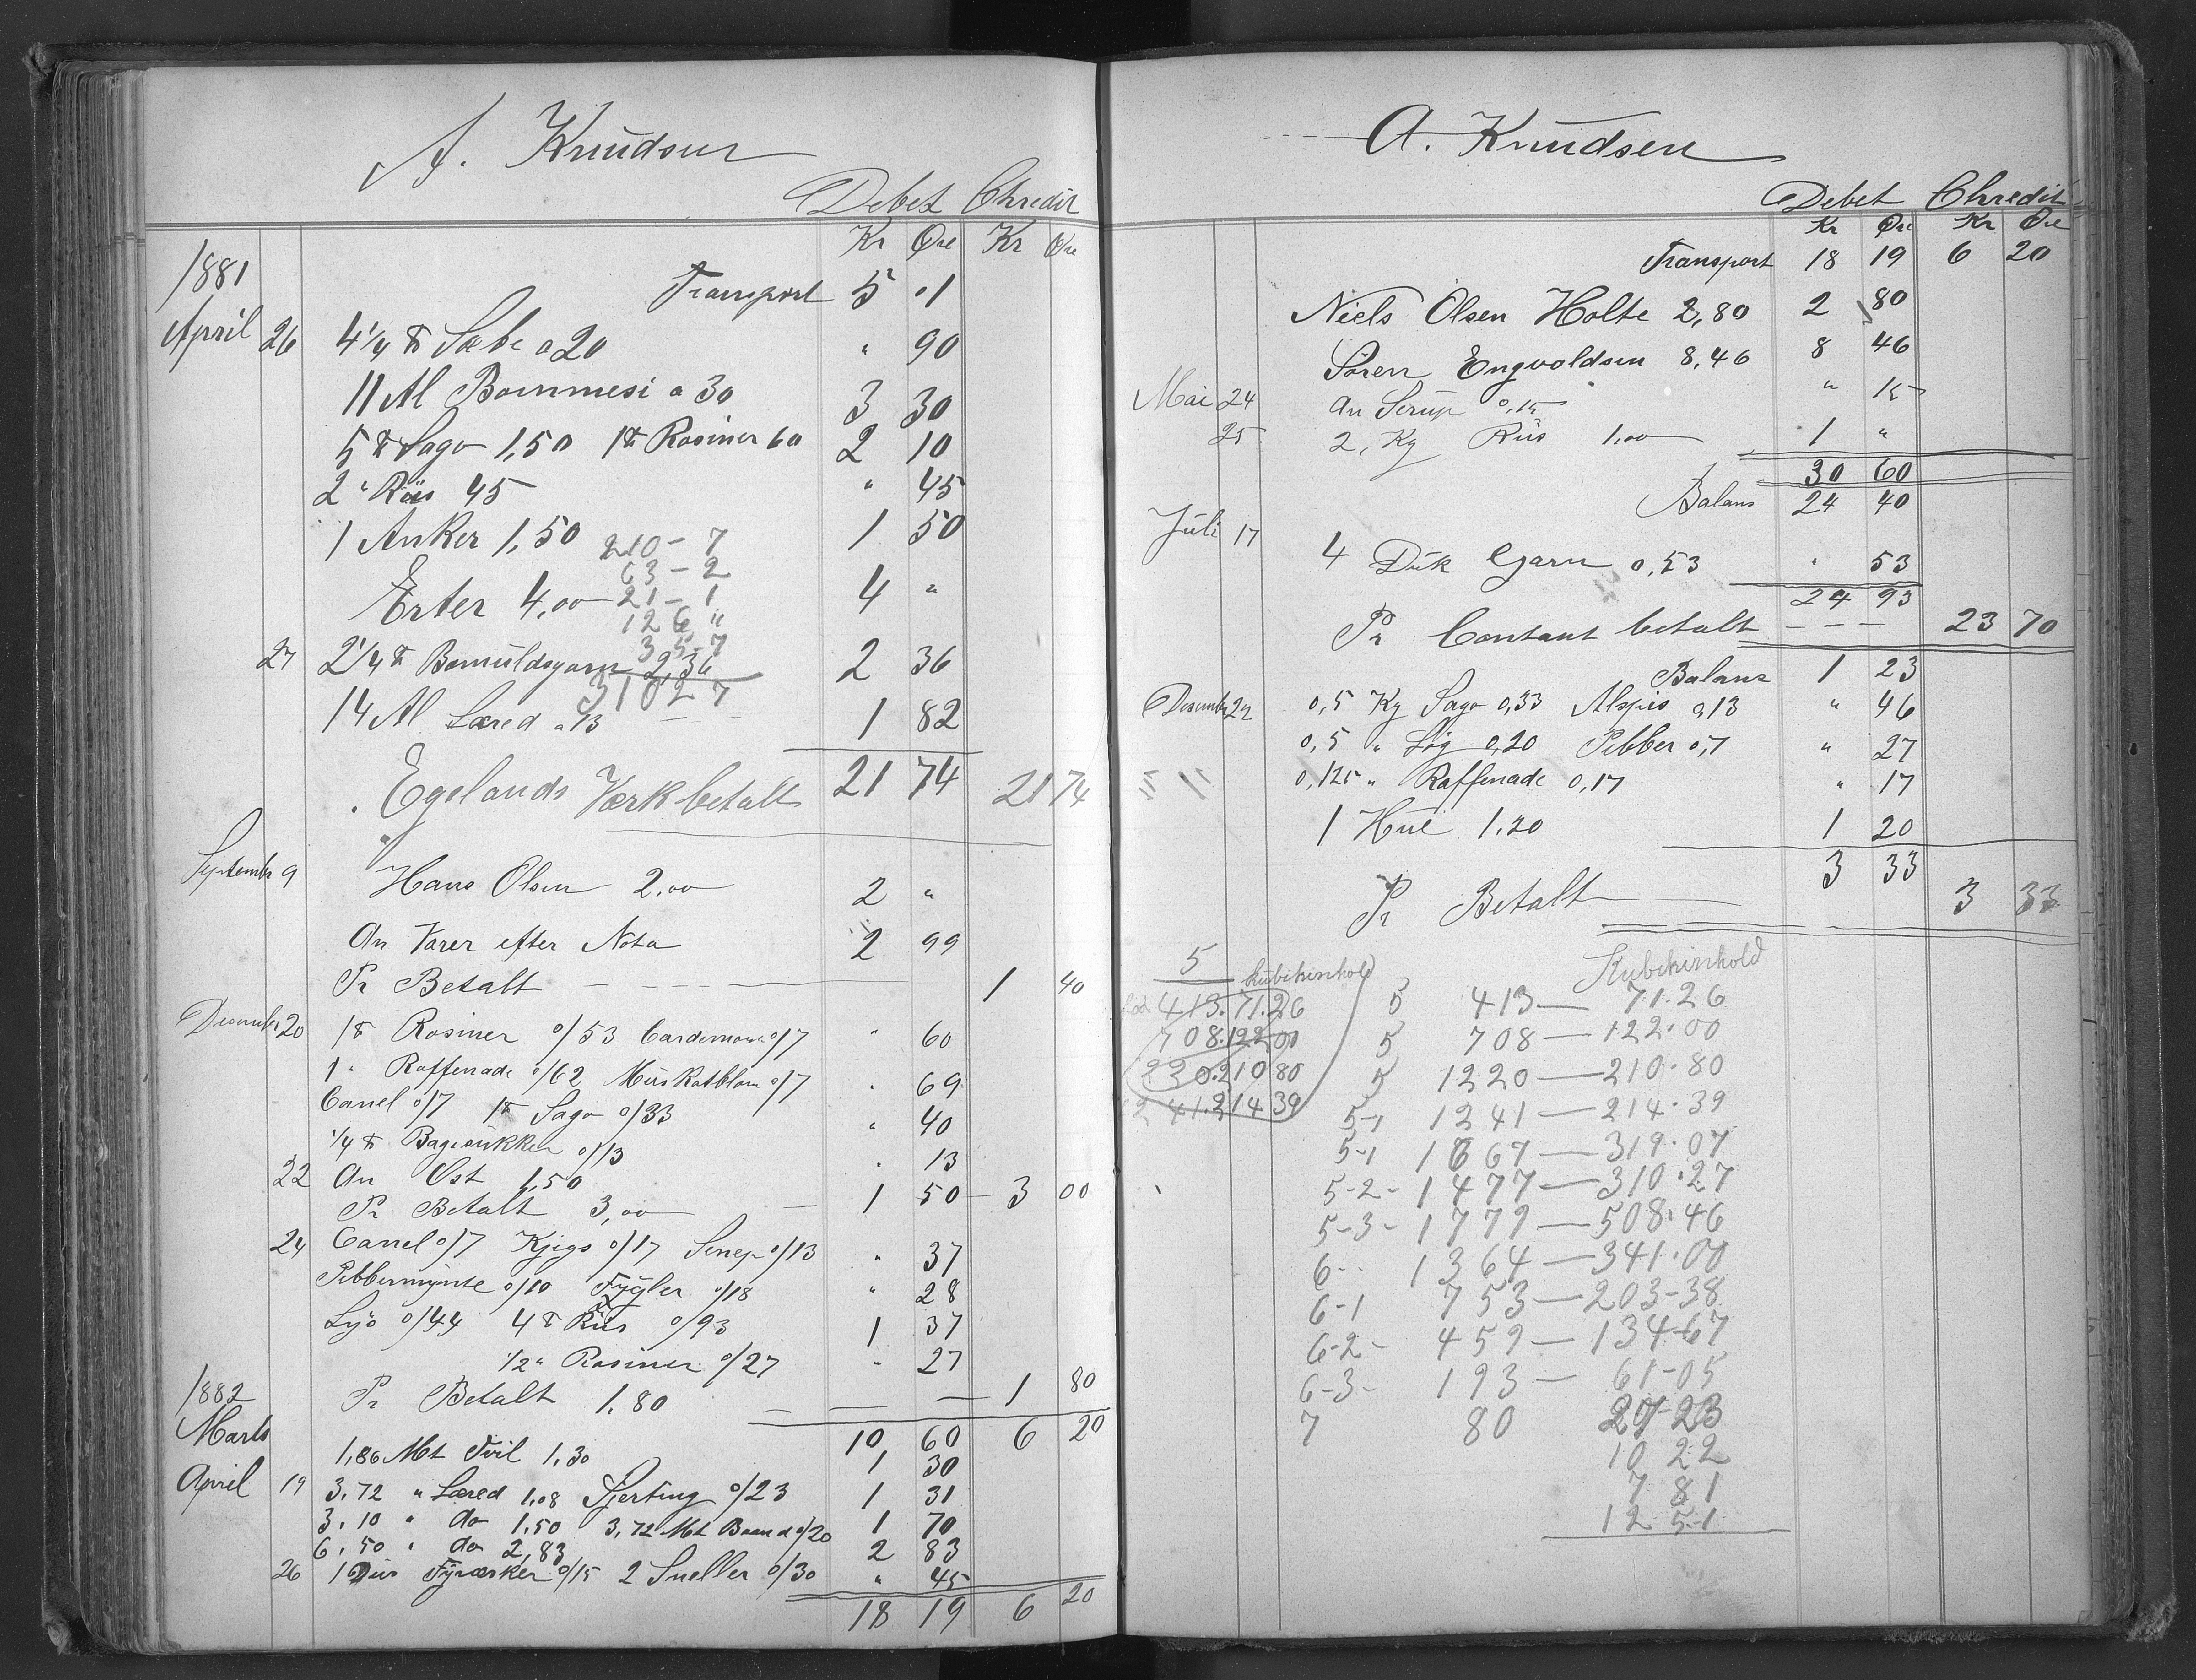 A. Knudsen
Debet Chredit
Kr Øre Kr Øre
1881 Transport 5 01
April 26 4 1/4 ℔ Sæbe a 20 " 90
11 Al Bommesi a 30 3 30
5 ℔ Sago 1,50 1 ℔ Rosiner 60 2 10
2 " Riis 45 " 45
1 Anker 1,50 1 50
210 - 7
63 - 2
Erter 4,00 4 "
21 - 1
126 "
35-7
27 2 1/4 ℔ Bomuldsgarn 2,36 2 36
310 27
14 Al Læred a 13 1 82
21 74
Egelands Værk betalt 21 74
September 9 Hans Olsen 2.00 2 "
An Varer efter Nota 2 99
Pr Betalt 1 40
Desember 20 1 ℔ Rosiner o/53 Cardemome o/7 " 60
1 " Raffenade o/62 Muskatblom o/7 " 69
Canel o/7 1 ℔ Sago o/33 " 40
1/4 ℔ Bagesukker o/13 " 13
22 An Ost 1,50 1 50
Pr Betalt 3,00 3 00
24 Canel o/7 Kjegs o/17 Senep o/13 " 37
Pebbermynte o/10 Fygler o/18 " 28
Lyo o/44 4 ℔ Riis o/93 1 37
1/2 " Rosiner o/27 " 27
1882 Pr Betalt 1.80 1 80
Marts 10 60 6 20
1,86 Mt Tvil 1,30 1 30
April 19 3.72 " Læred 1,08 Sjerting o/23 1 31
3.10 " do 1,50 3,72 Mt Baand o/20 1 70
6,50 " do 2,83 2 83
26 1 Dus Fyræsker o/15 2 Sneller o/30 " 45
18 19 6 20
A. Knudsen
Debet Chredit
Kr Øre Kr Øre
Transport 18 19 6 20
Niels Olsen Holte 2,80 2 80
Søren Engvoldsen 8,46 8 46
Mai 24 An Serup 0,15 " 15
25 2, Kg Riis 1,00 1 "
30 60
Balans 24 40
Juli 17 4 Duk Garn 0,53 " 53
24 93
Pr Contant betalt 23 70
Balans 1 23
Desember 22 0,5 Kg Sago 0,33 Alspis 0,13 " 46
0,5 " Løg 0,20 Pebber 0,7 " 27
0,125 " Raffenade 0,17 " 17
1 Hue 1.20 1 20
3 33
Pr Betalt 3 33
5 Kubikinhold
413.71.26
708.122 00
220.210 80
1241.214 39
Kubikinhold
5 413 — 71.26
5 708 — 122.00
5 1220 — 210.80
5-1 1241 — 214.39
5-1 1667 — 319.07
5-2- 1477 — 310.27
5-3- 1779 — 508.46
6-- 1364 — 341.00
6-1 753 — 203-38
6-2- 459 — 134-67
6-3- 193 — 61-05
7 80 27-23
10 22
7 81
12 5-1